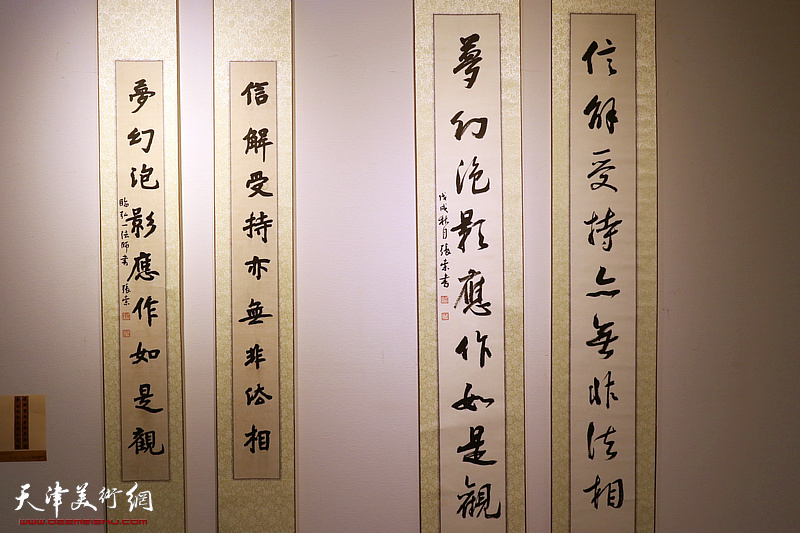 信解受持亦無非法相
夢幻泡影應作如是觀
戊戌秋月張
信解受持亦無非法相
夢幻泡影應作如是觀
臨弘一法師書 張
天津美術網